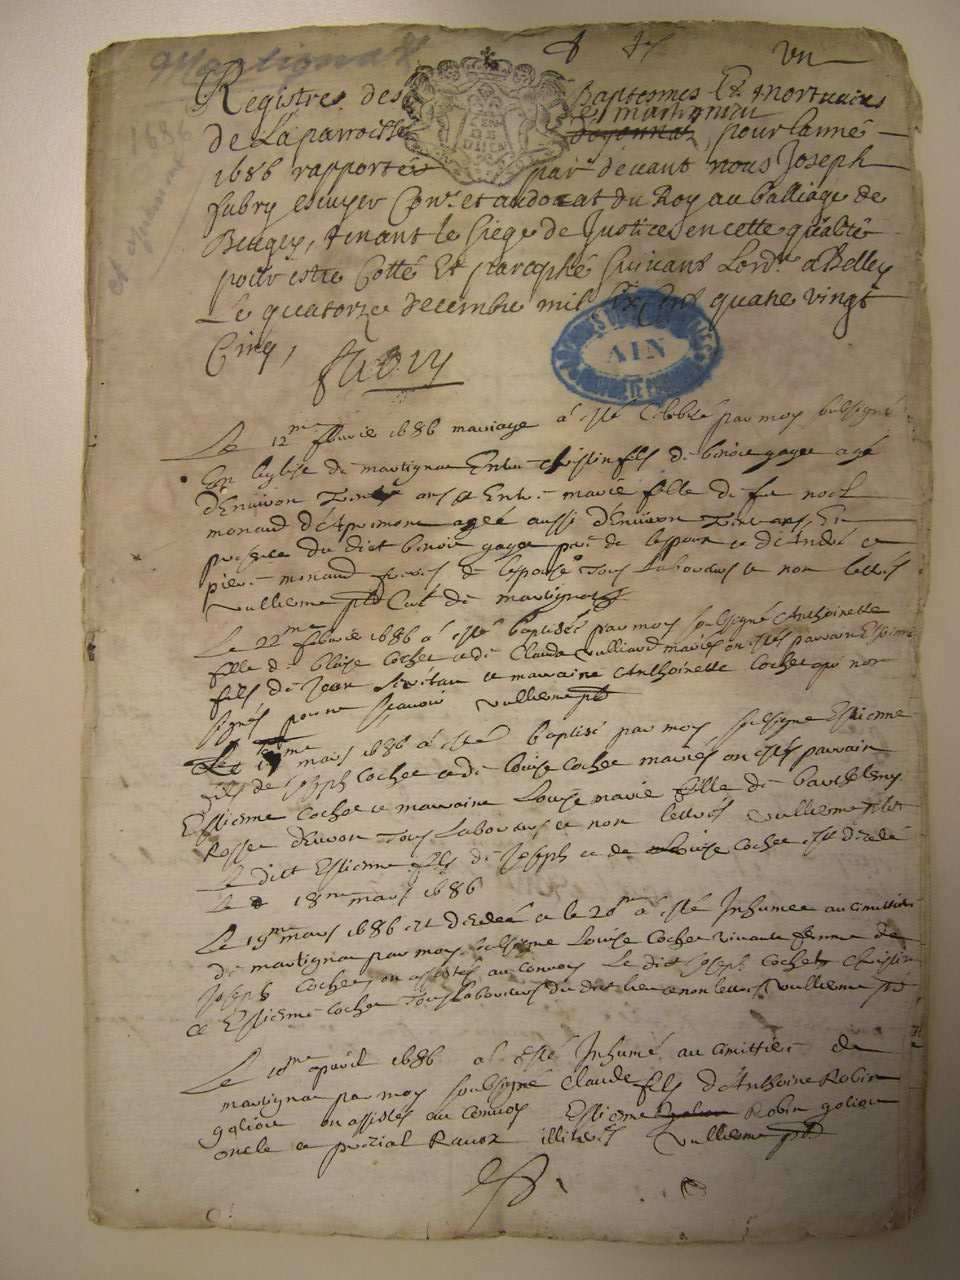 Martignat
1686
et
un
Registre des Baptesmes Et mortuaires
et martignia
de La parroisse doyonna, pour lannée
1686 rapporté par devant nous Joseph
fabry escuyer Con.r et advocat du Roy au balliage de
Beugey, tenant le siege de Justice en cette qualité
pour estre Cotté Et paraphé suivant Lord.e a Belley
Le quatorze decembre mil six cent quatre vingt
Cinq,
fabry
AIN
Le 12me febvrie 1686 mariage à esté Celebré par moy subsigné
En leglise de martignat Entre christin fils de benoie gagee agé
d'Environ Trente ans et Entre marie fille de fu noel
monaud d'Apremont agée aussi d'Environ Trente ans, En
presence du dict benoie gagee pere de lespoux et d'André et
pierre monaud freres de lespouse Tous Laboureurs et non lettrés
vullierme ptre Curé de martignat
Le 22me febvrie 1686 à esté baptisée par moy soubsigné Anthoinette
fille de blaise Cochet et de Claudа vulliard mariés on estés parrain
fils de Jean et marraine Anthoinette Cochet qui non
signés pour ne sçavoir vullierme ptre
Le mars 1686 à esté baptisé par moy subsigné Estienne
fils de Joseph Cochet et de Louise Cochet mariés on estés parrain
Estienne Cochet et marraine Louise marie fille de barthelemy
Rosset Tous Laboureurs et non lettrés vullierme ptre
Le dict Estienne fils de Joseph et de Louise Cochet est décédé
Le 18me mars 1686
Le 19me mars 1686 est décédé et le 20me à esté Inhumée au cimittiere
de martignat par moy subsigné Louise Cochet vivante femme de
Joseph Cochet on assistés au convoy Le dict Joseph Cochet Christin
et Estienne Cochet Tous Laboureurs du dict lieu et non lettrés vullierme ptre
Le 10me apvril 1686 à esté Inhumé au cimittiere de
martignat par moy soubsigné Claude fils d'Anthoine Robin
galion on assistés au convoy Estienne Robin galion
oncle et illiterés vullierme ptre